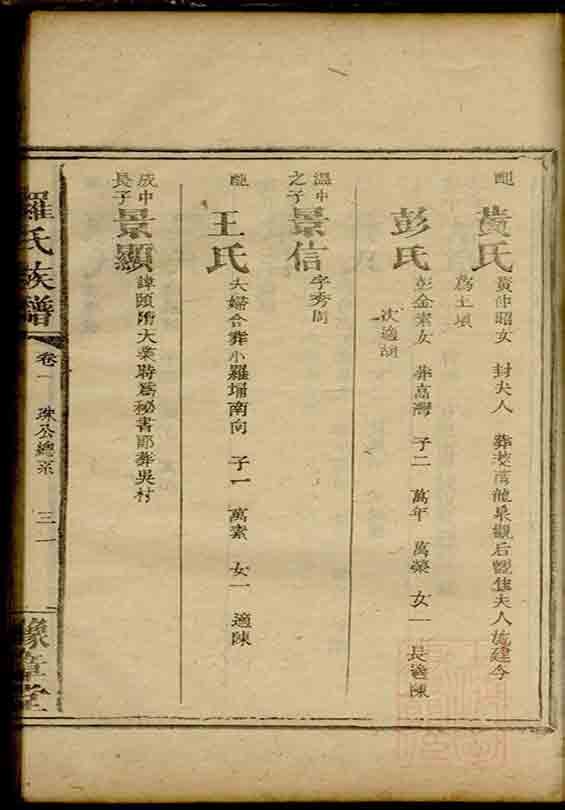 配 黃氏 黃仲昭女 封夫人 葬 觀后 夫人 建今
為土墳
彭氏 彭金素女 葬高灣 子二 萬年 萬榮 女一 長適陳
次適胡
溫中之子 景信 字秀周
配 王氏 夫婦合葬小羅埔南向 子一 萬素 女一 適陳
成中長子 景顯 諱頤隋大業時為秘書郎葬吳村
羅氏族譜 卷一 珠公總系 三一 豫章堂